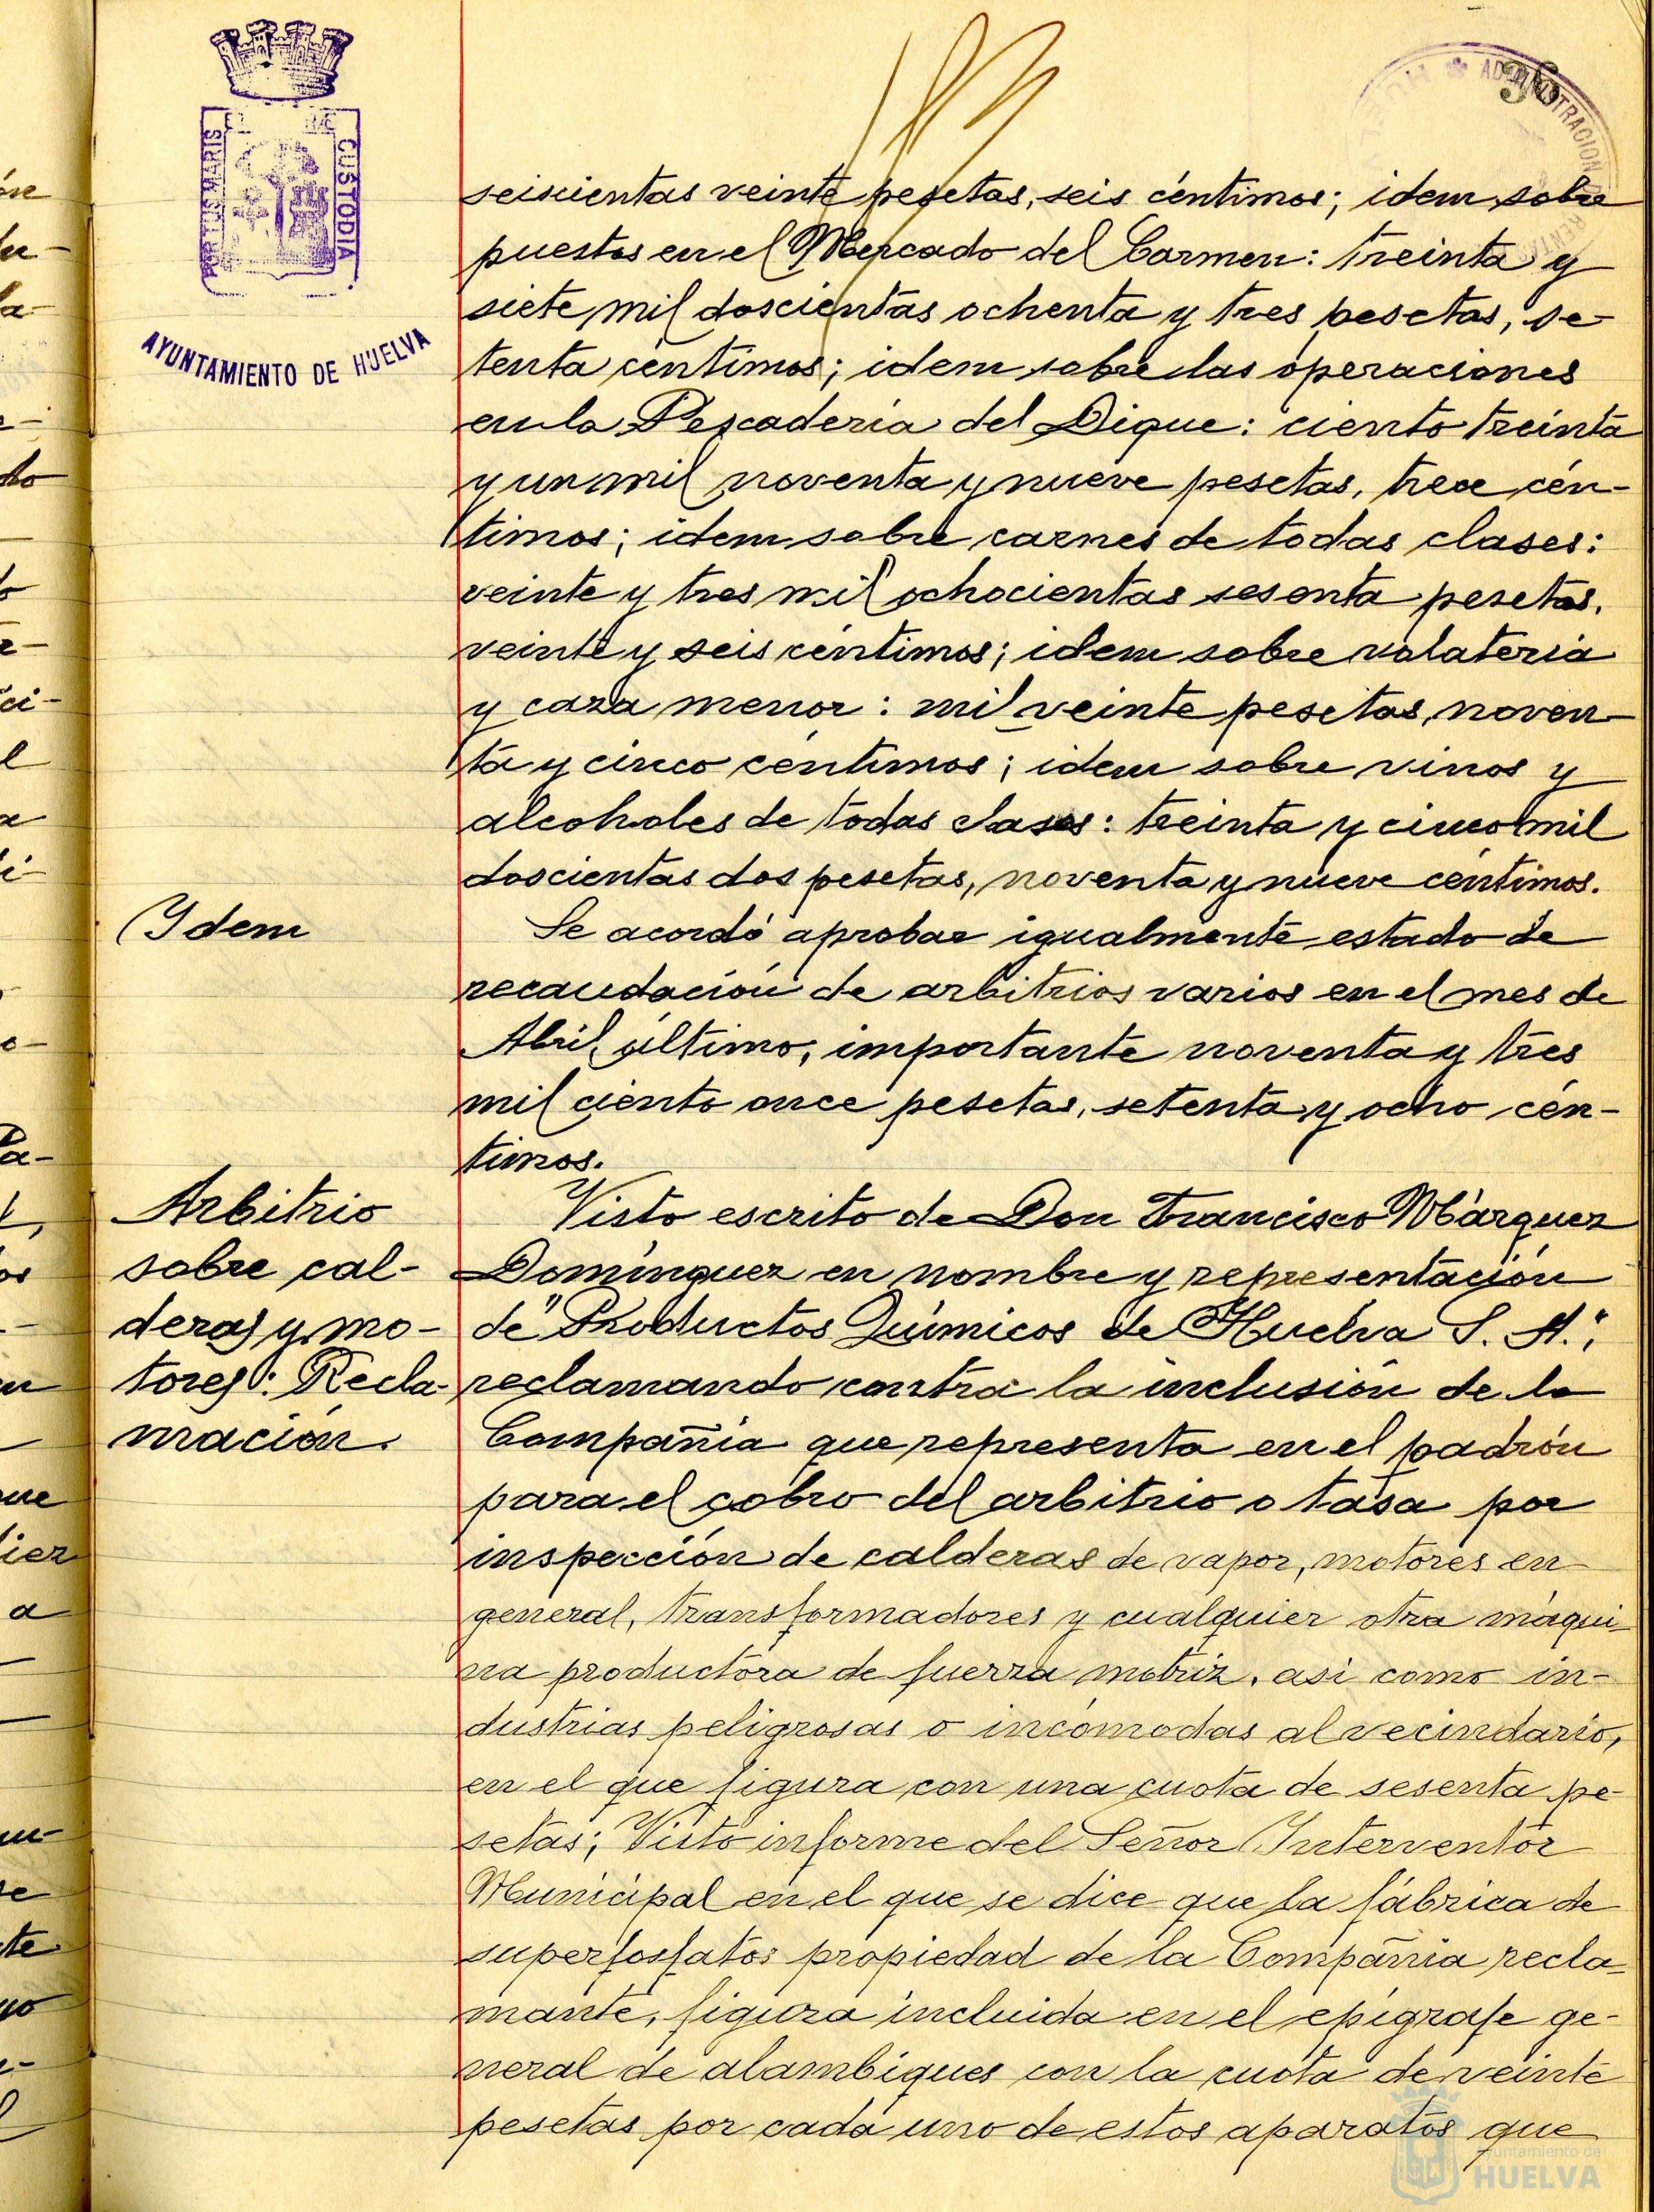 36
PORTUS MARIS
CUSTODIA
AYUNTAMIENTO DE HUELVA
ADMINISTRACION
seiscientas veinte pesetas, seis céntimos; idem sobre
puestos en el Mercado del Carmen: treinta y
siete mil doscientas ochenta y tres pesetas, se-
tenta céntimos; idem sobre las operaciones
en la Pescadería del Dique: ciento treinta
y un mil noventa y nueve pesetas, trece cén-
timos; idem sobre carnes de todas clases:
veinte y tres mil ochocientas sesenta pesetas,
veinte y seis céntimos; idem sobre volatería
y caza menor: mil veinte pesetas, noven-
ta y cinco céntimos; idem sobre vinos y
alcoholes de todas clases: treinta y cinco mil
doscientas dos pesetas, noventa y nueve céntimos.
Ydem
Se acordó aprobar igualmente estado de
recaudación de arbitrios varios en el mes de
Abril último, importante noventa y tres
mil ciento once pesetas, setenta y ocho cén-
timos.
Arbitrio
sobre cal-
deras y mo-
tores: Recla-
mación.
Visto escrito de Don Francisco Márquez
Domínguez en nombre y representación
de "Productos Químicos de Huelva S. A.",
reclamando contra la inclusión de la
Compañía que representa en el padrón
para el cobro del arbitrio o tasa por
inspección de calderas de vapor, motores en
general, transformadores y cualquier otra máqui-
na productora de fuerza motriz, asi como in-
dustrias peligrosas o incómodas al vecindario,
en el que figura con una cuota de sesenta pe-
setas; Visto informe del Señor Interventor
Municipal en el que se dice que la fábrica de
superfosfatos propiedad de la Compañía recla-
mante, figura incluida en el epígrafe ge-
neral de alambiques con la cuota de veinte
pesetas por cada uno de estos aparatos que
Ayuntamiento de
HUELVA